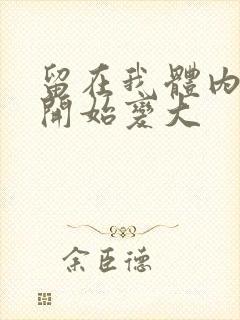 留在我體內
開始變大
余臣德